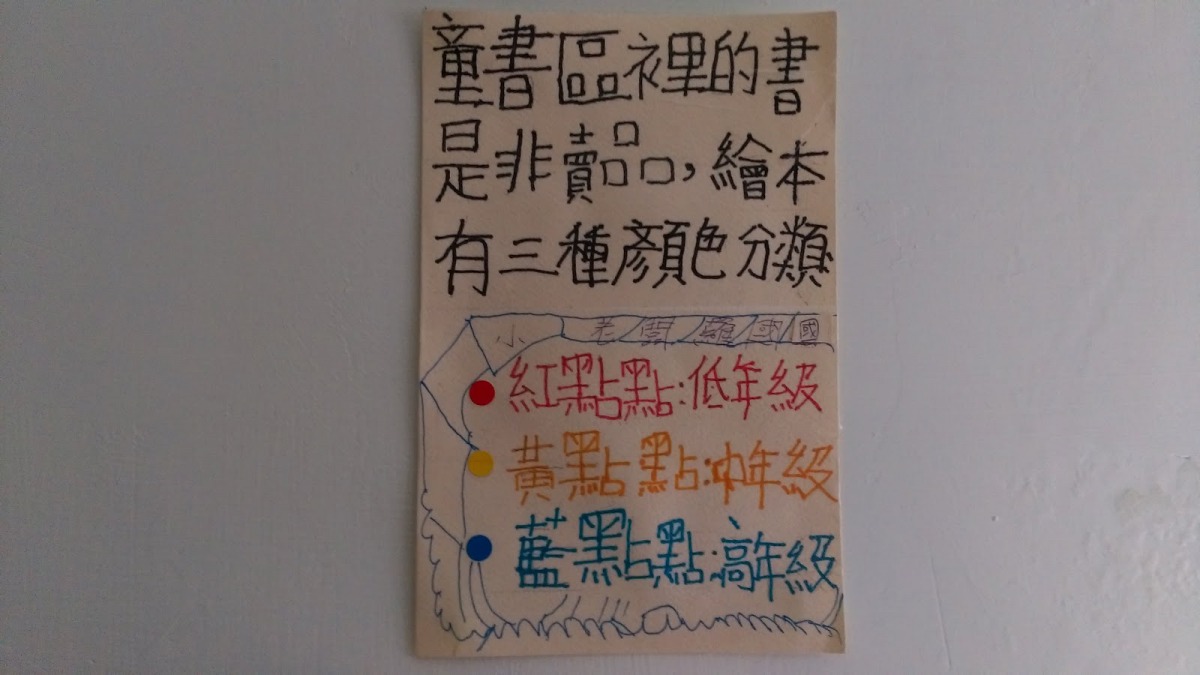 童書區裡的書
是非賣品，繪本
有三種顏色分類
小 老闆 羅國國
紅點點:低年級
黃點點:中年級
藍點點:高年級